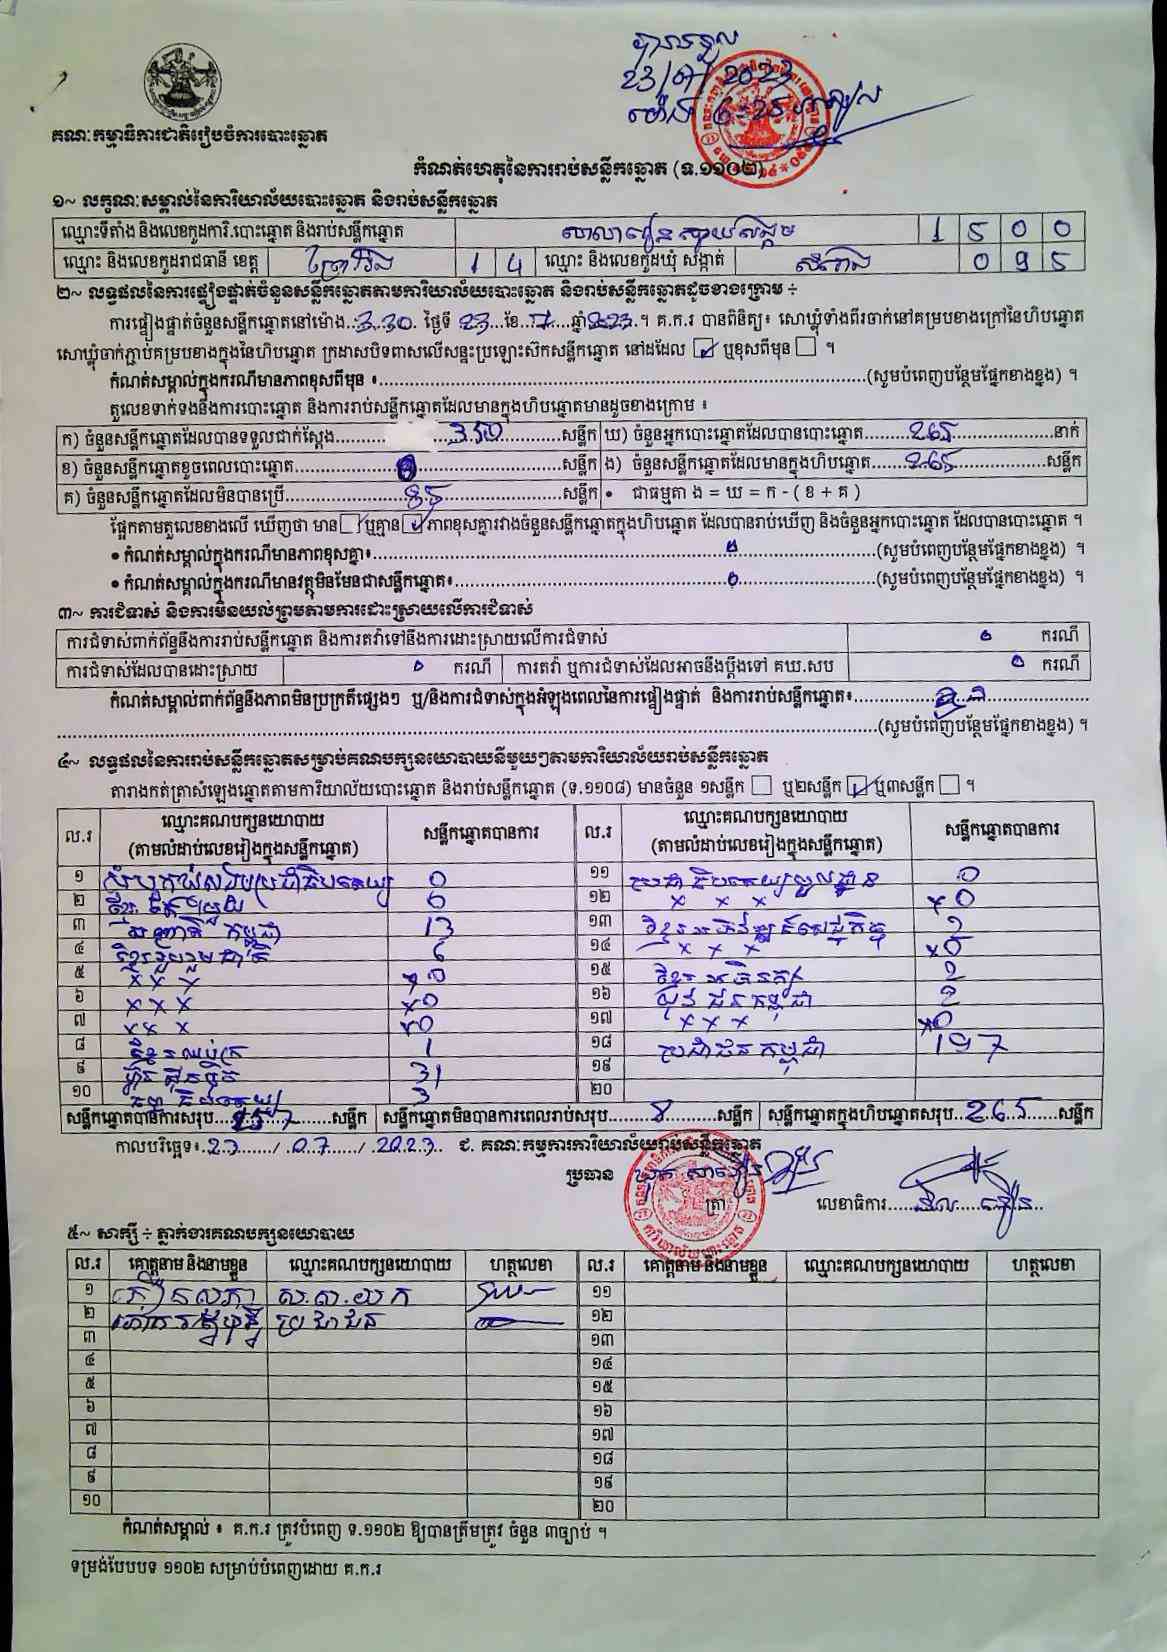 បានទទួល
23/7/2023
ម៉ោង 6-25
គណៈកម្មាធិការជាតិរៀបចំការបោះឆ្នោត
កំណត់ហេតុនៃការរាប់សន្លឹកឆ្នោត (ទ.១១០២)
១~ លក្ខណៈសម្គាល់នៃការិយាល័យបោះឆ្នោត និងរាប់សន្លឹកឆ្នោត
ឈ្មោះទីតាំង និងលេខកូដការិ.បោះឆ្នោត និងរាប់សន្លឹកឆ្នោត សាលារៀន ស្វាយសង្កែម 1 5 0 0
ឈ្មោះ និងលេខកូដរាជធានី ខេត្ត ព្រៃវែង 1 4 ឈ្មោះ និងលេខកូដឃុំ សង្កាត់ 0 9 5
២~ លទ្ធផលនៃការផ្ទៀងផ្ទាត់ចំនួនសន្លឹកឆ្នោតតាមការិយាល័យបោះឆ្នោត និងរាប់សន្លឹកឆ្នោតដូចខាងក្រោម ÷
ការផ្ទៀងផ្ទាត់ចំនួនសន្លឹកឆ្នោតនៅម៉ោង..3.30. ថ្ងៃទី 23 ខែ 7 ឆ្នាំ 2023។ គ.ក.រ បានពិនិត្យ៖ សោឃ្លុំទាំងពីរចាក់នៅគម្របខាងក្រៅនៃហិបឆ្នោត
សោឃ្លុំចាក់ភ្ជាប់គម្របខាងក្នុងនៃហិបឆ្នោត ក្រដាសបិទពាសលើសន្ទះប្រឡោះស៊កសន្លឹកឆ្នោត នៅដដែល ☑ ឬខុសពីមុន ☐ ។
កំណត់សម្គាល់ក្នុងករណីមានភាពខុសពីមុន ៖..........(សូមបំពេញបន្ថែមផ្នែកខាងខ្នង) ។
តួលេខទាក់ទងនឹងការបោះឆ្នោត និងការរាប់សន្លឹកឆ្នោតដែលមានក្នុងហិបឆ្នោតមានដូចខាងក្រោម ៖
ក) ចំនួនសន្លឹកឆ្នោតដែលបានទទួលជាក់ស្តែង..........350..........សន្លឹក ឃ) ចំនួនអ្នកបោះឆ្នោតដែលបានបោះឆ្នោត.........265..........នាក់
ខ) ចំនួនសន្លឹកឆ្នោតខូចពេលបោះឆ្នោត..........0..........សន្លឹក ង) ចំនួនសន្លឹកឆ្នោតដែលមានក្នុងហិបឆ្នោត.......265..........សន្លឹក
គ) ចំនួនសន្លឹកឆ្នោតដែលមិនបានប្រើ..........85..........សន្លឹក • ជាធម្មតា ង = ឃ = ក - ( ខ + គ )
ផ្អែកតាមតួលេខខាងលើ ឃើញថា មាន☐ ឬគ្មាន☑ ភាពខុសគ្នារវាងចំនួនសន្លឹកឆ្នោតក្នុងហិបឆ្នោត ដែលបានរាប់ឃើញ និងចំនួនអ្នកបោះឆ្នោត ដែលបានបោះឆ្នោត ។
• កំណត់សម្គាល់ក្នុងករណីមានភាពខុសគ្នា៖..........0..........(សូមបំពេញបន្ថែមផ្នែកខាងខ្នង) ។
• កំណត់សម្គាល់ក្នុងករណីមានវត្ថុមិនមែនជាសន្លឹកឆ្នោត៖..........0..........(សូមបំពេញបន្ថែមផ្នែកខាងខ្នង) ។
៣~ ការជំទាស់ និងការមិនយល់ព្រមតាមការដោះស្រាយលើការជំទាស់
ការជំទាស់ពាក់ព័ន្ធនឹងការរាប់សន្លឹកឆ្នោត និងការតវ៉ាទៅនឹងការដោះស្រាយលើការជំទាស់ 0 ករណី
ការជំទាស់ដែលបានដោះស្រាយ 0 ករណី ការតវ៉ា ឬការជំទាស់ដែលអាចនឹងប្តឹងទៅ គឃ.សប 0 ករណី
កំណត់សម្គាល់ពាក់ព័ន្ធនឹងភាពមិនប្រក្រតីផ្សេងៗ ឬ/និងការជំទាស់ក្នុងអំឡុងពេលនៃការផ្ទៀងផ្ទាត់ និងការរាប់សន្លឹកឆ្នោត៖..........
..........(សូមបំពេញបន្ថែមផ្នែកខាងខ្នង) ។
៤~ លទ្ធផលនៃការរាប់សន្លឹកឆ្នោតសម្រាប់គណបក្សនយោបាយនីមួយៗតាមការិយាល័យរាប់សន្លឹកឆ្នោត
តារាងកត់ត្រាសំឡេងឆ្នោតតាមការិយាល័យបោះឆ្នោត និងរាប់សន្លឹកឆ្នោត (ទ.១១០៨) មានចំនួន ១សន្លឹក ☐ ឬ២សន្លឹក ☑ ឬ៣សន្លឹក ☐ ។
ល.រ ឈ្មោះគណបក្សនយោបាយ (តាមលំដាប់លេខរៀងក្នុងសន្លឹកឆ្នោត) សន្លឹកឆ្នោតបានការ ល.រ ឈ្មោះគណបក្សនយោបាយ (តាមលំដាប់លេខរៀងក្នុងសន្លឹកឆ្នោត) សន្លឹកឆ្នោតបានការ
១ សំបុកឃ្មុំសង្គមប្រជាធិបតេយ្យ 0 ១១ ប្រជាធិបតេយ្យមូលដ្ឋាន 0
២ ខ្មែរតែមួយ 6 ១២ x x x x0
៣ សញ្ជាតិកម្ពុជា 13 ១៣ ខ្មែរអភិវឌ្ឍន៍សេដ្ឋកិច្ច 2
៤ ខ្មែររួបរួមជាតិ 6 ១៤ x x x x0
៥ x x x x0 ១៥ ខ្មែរអភិរក្ស 2
៦ x x x x0 ១៦ យុវជនកម្ពុជា 2
៧ x x x x0 ១៧ x x x x0
៨ ខ្មែរឈប់ក្រ 1 ១៨ ប្រជាជនកម្ពុជា 197
៩ ហ៊្វុនស៊ិនប៉ិច 31 ១៩
១០ ធម្មាធិបតេយ្យ 3 ២០
សន្លឹកឆ្នោតបានការសរុប...257...សន្លឹក សន្លឹកឆ្នោតមិនបានការពេលរាប់សរុប.........8.......សន្លឹក សន្លឹកឆ្នោតក្នុងហិបឆ្នោតសរុប..265......សន្លឹក
កាលបរិច្ឆេទ៖..23......./.07....../.2023.. ជ. គណៈកម្មការការិយាល័យរាប់សន្លឹកឆ្នោត
ប្រធាន
ត្រា
លេខាធិការ..........
៥~ សាក្សី ÷ ភ្នាក់ងារគណបក្សនយោបាយ
ល.រ គោត្តនាម និងនាមខ្លួន ឈ្មោះគណបក្សនយោបាយ ហត្ថលេខា ល.រ គោត្តនាម និងនាមខ្លួន ឈ្មោះគណបក្សនយោបាយ ហត្ថលេខា
១ ស.ស.យ.ក ១១
២ ប្រជាជន ១២
៣ ១៣
៤ ១៤
៥ ១៥
៦ ១៦
៧ ១៧
៨ ១៨
៩ ១៩
១០ ២០
កំណត់សម្គាល់ ៖ គ.ក.រ ត្រូវបំពេញ ទ.១១០២ ឱ្យបានត្រឹមត្រូវ ចំនួន ៣ច្បាប់ ។
ទម្រង់បែបបទ ១១០២ សម្រាប់បំពេញដោយ គ.ក.រ